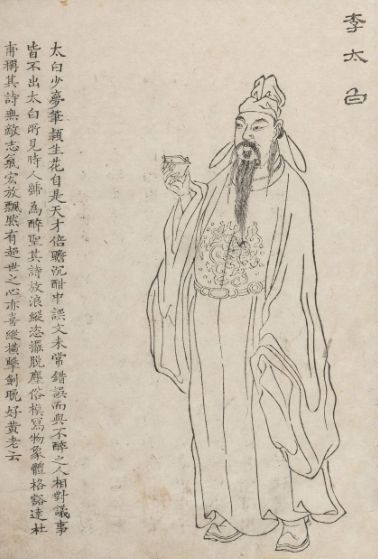 李太白
太白少夢筆頭生花自是天才倍贍沉酣中譔文未常錯誤而與不醉之人相對議事
皆不出太白所見時人號為醉聖其詩放浪縱恣擺脫塵俗模寫物象體格豁達杜
甫稱其詩無敵志氣宏放飄然有超世之心亦喜縱橫擊劍晚好黃老云